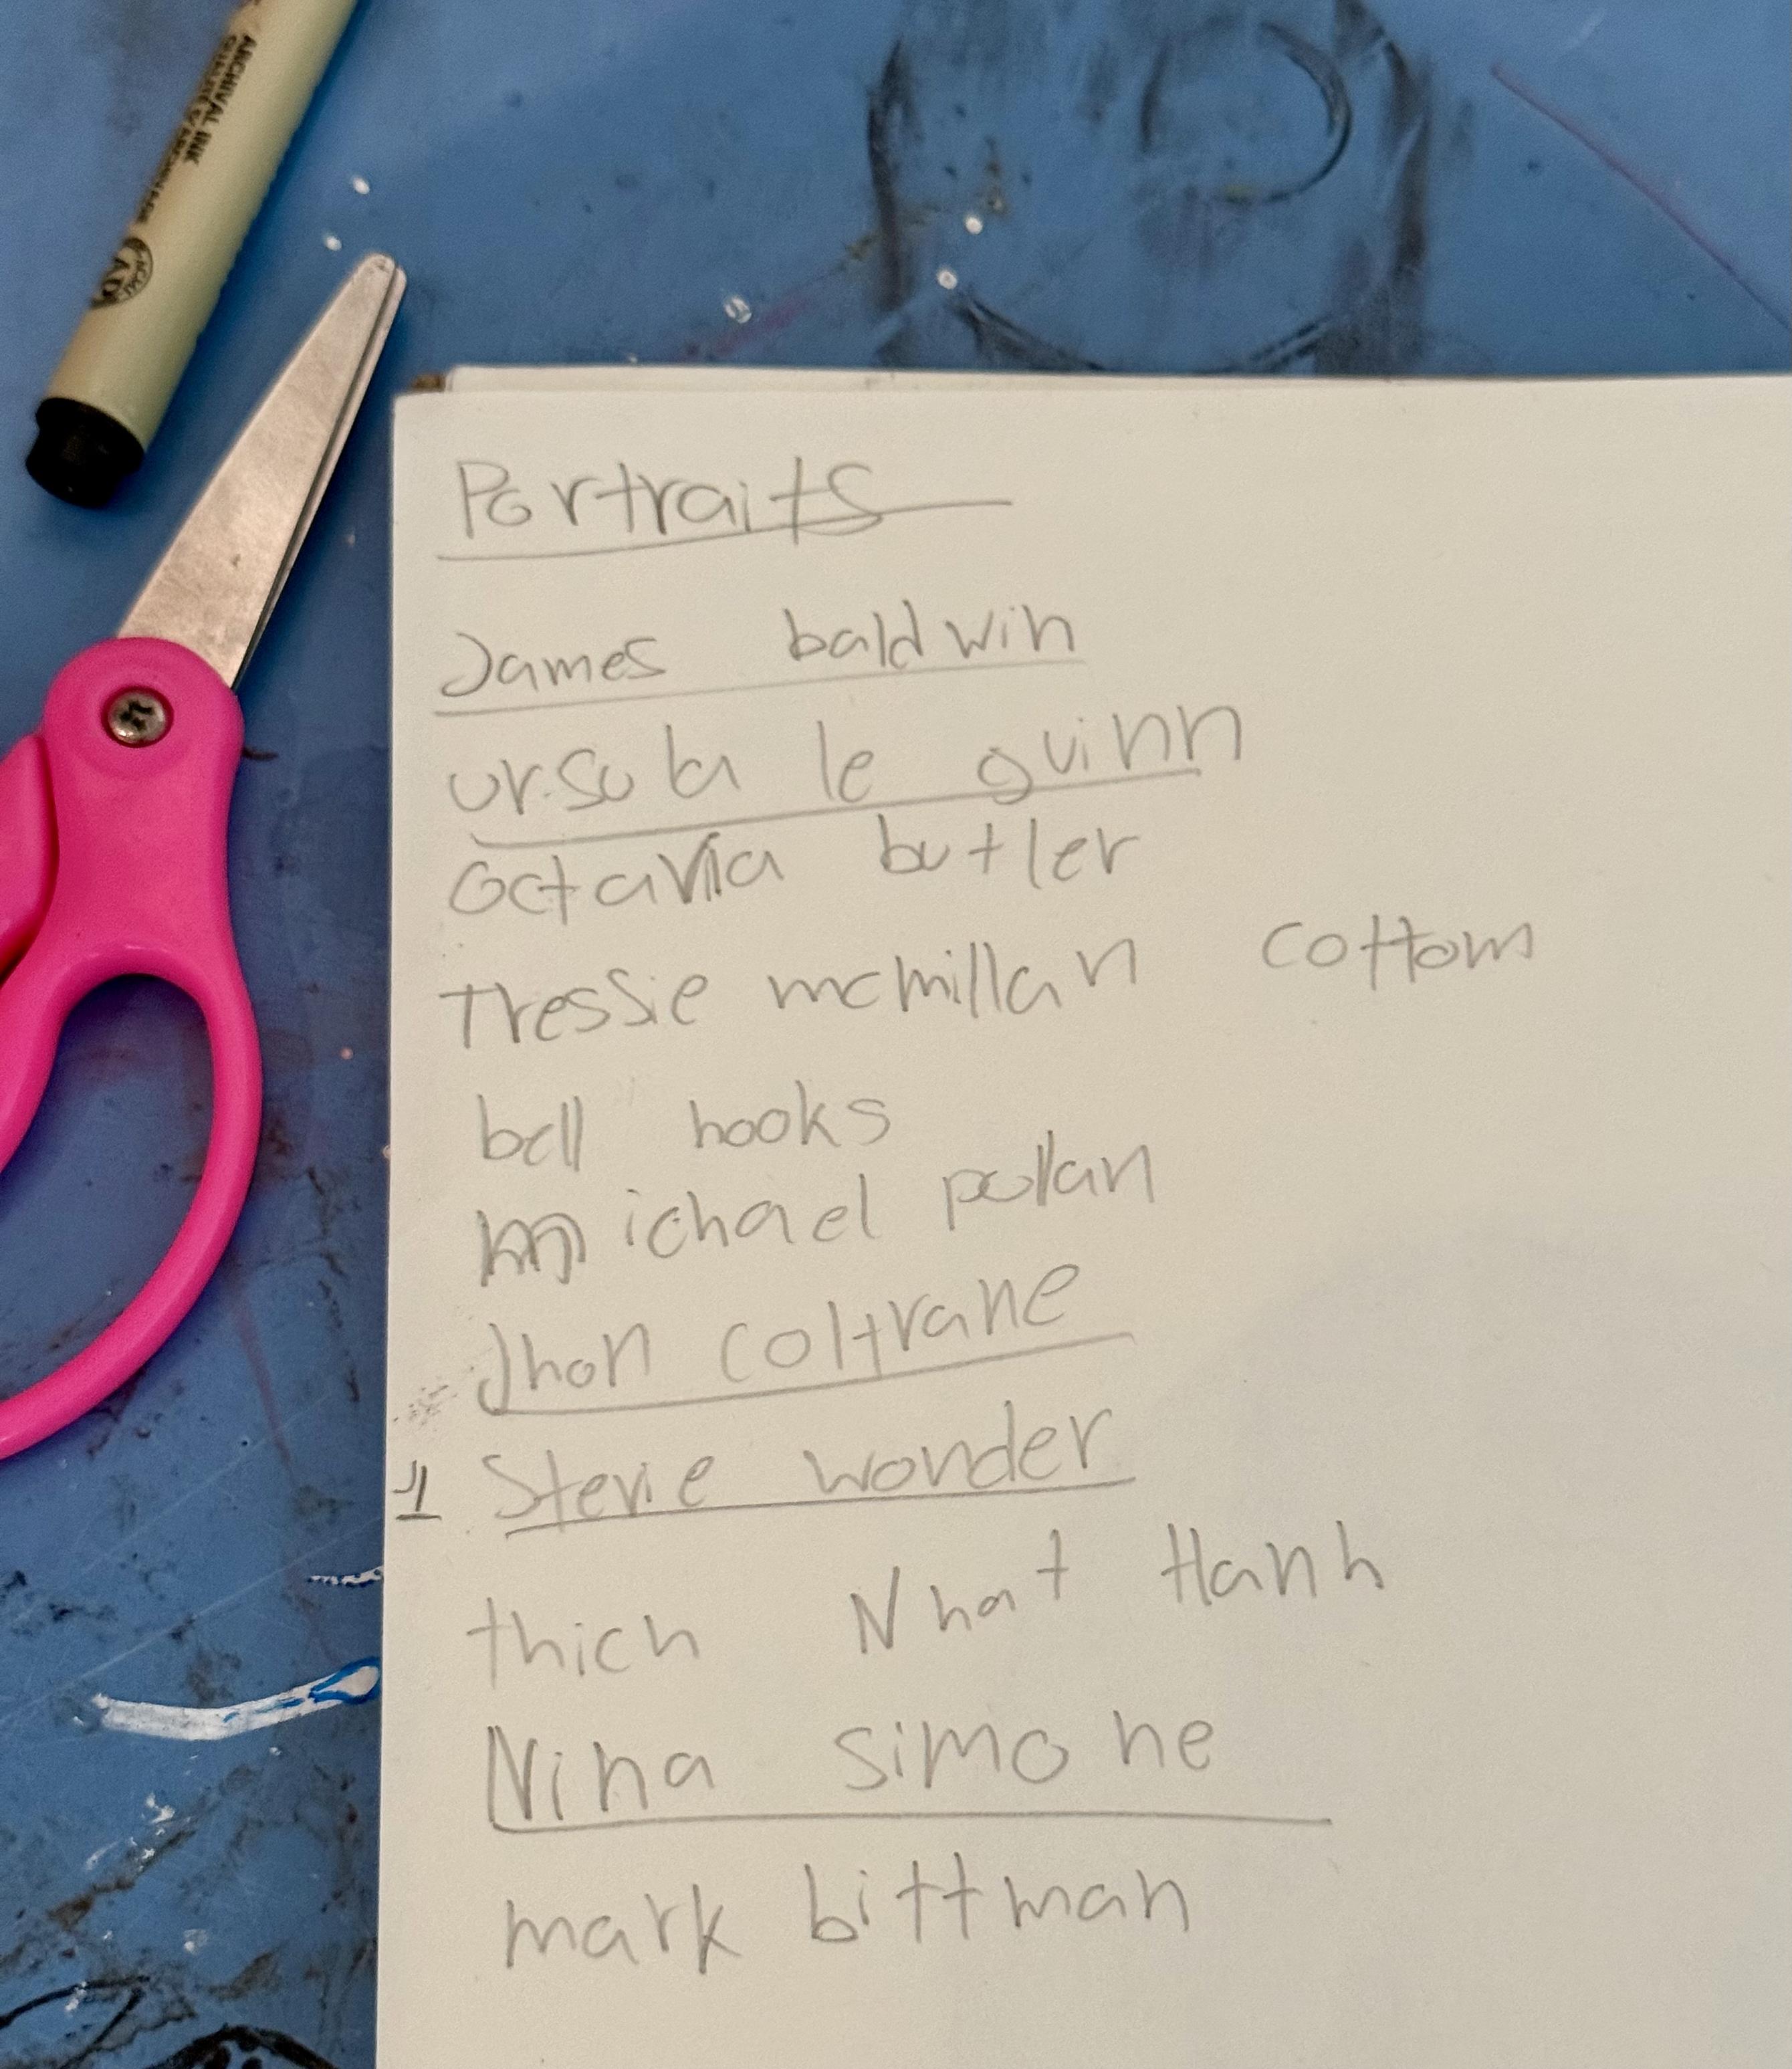 ARCHIVAL INK
Portraits
James baldwin
ursula le guinn
Octavia butler
Tressie mcmillan cottom
bell hooks
michael pollan
Jhon coltrane
1 Stevie wonder
thich Nhat Hanh
Nina simone
mark bittman